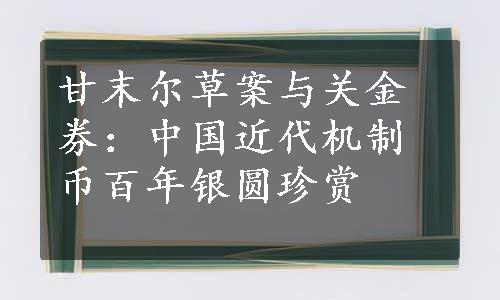 甘末尔草案与关金
券：中国近代机制
币百年银圆珍赏